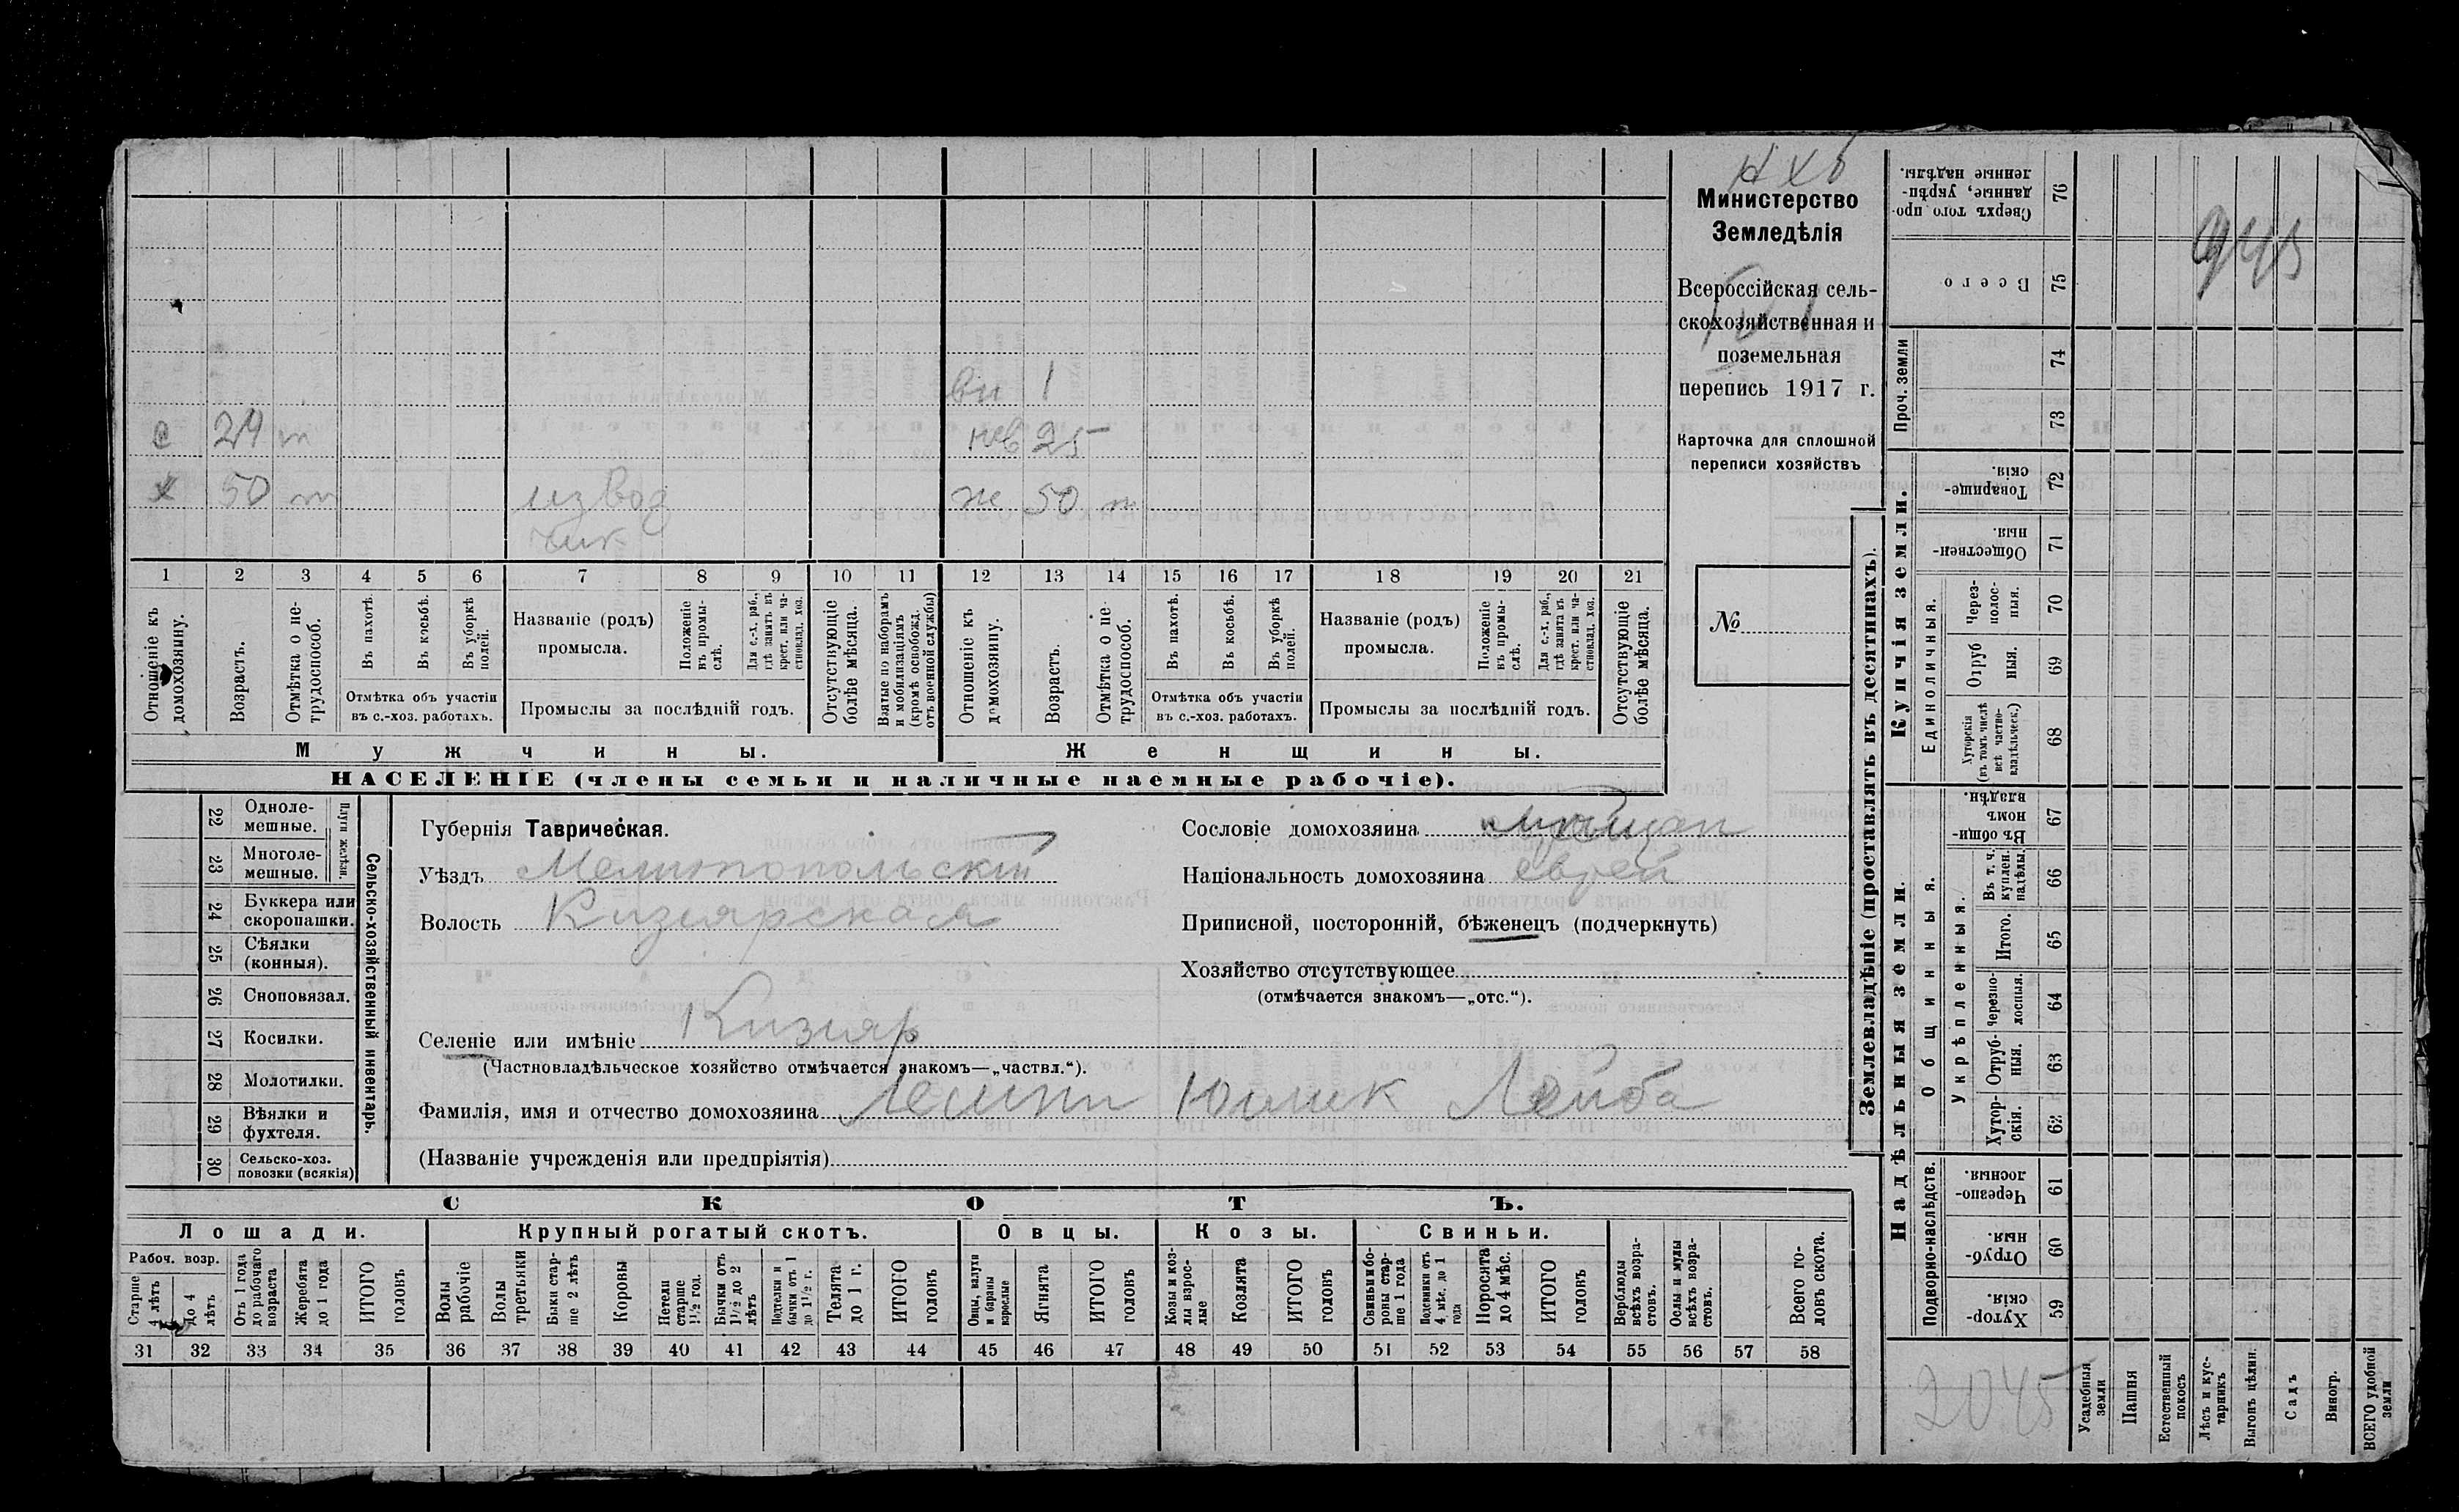 НХб
Министерство
Земледѣлія
Всероссійская сель-
скохозяйственная и
поземельная
перепись 1917 г.
Карточка для сплошной
переписи хозяйствъ
№
вн 1
с 24 т
нев 25
х 50 т
извод
чик
же 50 т
1 2 3 4 5 6 7 8 9 10 11 12 13 14 15 16 17 18 19 20 21
Отношеніе къ домохозяину.
Возрастъ.
Отмѣтка о не-трудоспособ.
Въ пахотѣ.
Въ косьбѣ.
Въ уборкѣ полей.
Отмѣтка объ участіи
въ с.-хоз. работахъ.
Названіе (родъ)
промысла.
Положеніе въ промы-слѣ.
Для с.-х. раб., гдѣ занятъ въ крест. или ча-стновлад. хоз.
Промыслы за послѣдній годъ.
Отсутствующіе болѣе мѣсяца.
Взятые по наборамъ и мобилизаціямъ (кромѣ освобожд. отъ военной службы)
Отношеніе къ домохозяину.
Возрастъ.
Отмѣтка о не-трудоспособ.
Въ пахотѣ.
Въ косьбѣ.
Въ уборкѣ полей.
Отмѣтка объ участіи
въ с.-хоз. работахъ.
Названіе (родъ)
промысла.
Положеніе въ промы-слѣ.
Для с.-х. раб., гдѣ занята въ крест. или ча-стновлад. хоз.
Промыслы за послѣдній годъ.
Отсутствующіе болѣе мѣсяца.
Мужчины.
Женщины.
НАСЕЛЕНІЕ (члены семьи и наличные наемные рабочіе).
22 Одноле-мешные.
23 Многоле-мешные.
Плуги желѣзн.
24 Буккера или скоропашки.
25 Сѣялки (конныя).
26 Сноповязал.
27 Косилки.
28 Молотилки.
29 Вѣялки и фухтеля.
30 Сельско-хоз. повозки (всякія)
Сельско-хозяйственный инвентарь.
Губернія Таврическая.
Уѣздъ Мелитопольскій
Волость Кизиярская
Сословіе домохозяина мещан
Національность домохозяина еврей
Приписной, посторонній, бѣженецъ (подчеркнуть)
Хозяйство отсутствующее
(отмѣчается знакомъ—„отс.“).
Селеніе или имѣніе Кизияр
(Частновладѣльческое хозяйство отмѣчается знакомъ—„частвл.“).
Фамилія, имя и отчество домохозяина Юшек Лейба
(Названіе учрежденія или предпріятія)
СКОТЪ.
Лошади.
Крупный рогатый скотъ.
Овцы.
Козы.
Свиньи.
Рабоч. возр.
Старше 4 лѣтъ
До 4 лѣтъ
Отъ 1 года до рабочаго возраста
Жеребята до 1 года
ИТОГО головъ
Волы рабочіе
Волы третьяки
Быки стар-ше 2 лѣтъ
Коровы
Нетели старше 1½ год.
Бычки отъ 1½ до 2 лѣтъ
Подтелки и бычки отъ 1 до 1½ г.
Телята до 1 г.
ИТОГО головъ
Овцы, валухи и бараны взрослые
Ягнята
ИТОГО головъ
Козы и коз-лы взрос-лые
Козлята
ИТОГО головъ
Свиньи и бо-ровы стар-ше 1 года
Подсвинки отъ 4 мѣс. до 1 года
Поросята до 4 мѣс.
ИТОГО головъ
Верблюды всѣхъ возра-стовъ.
Ослы и мулы всѣхъ возра-стовъ.
Всего го-ловъ скота.
31 32 33 34 35 36 37 38 39 40 41 42 43 44 45 46 47 48 49 50 51 52 53 54 55 56 57 58
Землевладѣніе (проставлять въ десятинахъ).
Надѣльныя земли.
Купчія земли.
Проч. земли
Подворно-наслѣдств.
Общинныя.
Укрѣпленныя.
Единоличныя.
Сверхъ того про-данные, укрѣп-ленные надѣлы. 76
Всего 75
74
73
Товарище-скія. 72
Обществен-ныя. 71
Через-полос-ныя. 70
Отруб ныя. 69
Хуторскія (въ томъ числѣ всѣ частно-владѣльческ.) 68
Въ общи-номъ владѣн. 67
Въ т. ч. куплен. надѣлы. 66
Итого. 65
Черезпо-лосныя. 64
Отруб-ныя. 63
Хутор-скія. 62
Черезпо-лосныя. 61
Отруб-ныя. 60
Хутор-скія. 59
945
2045
Усадебныя земли
Пашня
Естественный покосъ
Лѣсъ и кус-тарникъ
Выгонъ цѣлин.
Садъ
Виногр.
ВСЕГО удобной земли